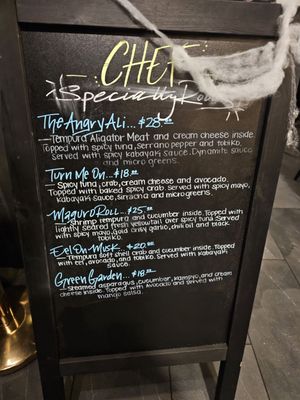 CHEF
Specialty Rolls
The Angry Ali... $28.00
Tempura Aligator Meat and cream cheese inside.
Topped with spicy tuna, serrano pepper and tobiko.
Served with spicy kabayaki sauce. Dynamite sauce
and micro greens.
Turn Me On... $18.00
Spicy tuna, crab, cream cheese and avocado.
Topped with baked spicy crab. Served with spicy mayo,
kabayaki sauce, sriracha and microgreens.
Maguro Roll... $25.00
Shrimp tempura and cucumber inside. Topped with
lightly seared fresh yellowtail over spicy tuna. Served
with spicy mayo, gold crazy garlic, chili oil and black
tobiko.
Eel On Musk... $20.00
Tempura soft shell crab and cucumber inside. Topped
with eel, avocado, and tobiko. Served with kabayaki
sauce.
Green Garden... $18.00
Steamed asparagus, cucumber, kampyo, and cream
cheese inside. Topped with Avocado and served with
mango salsa.